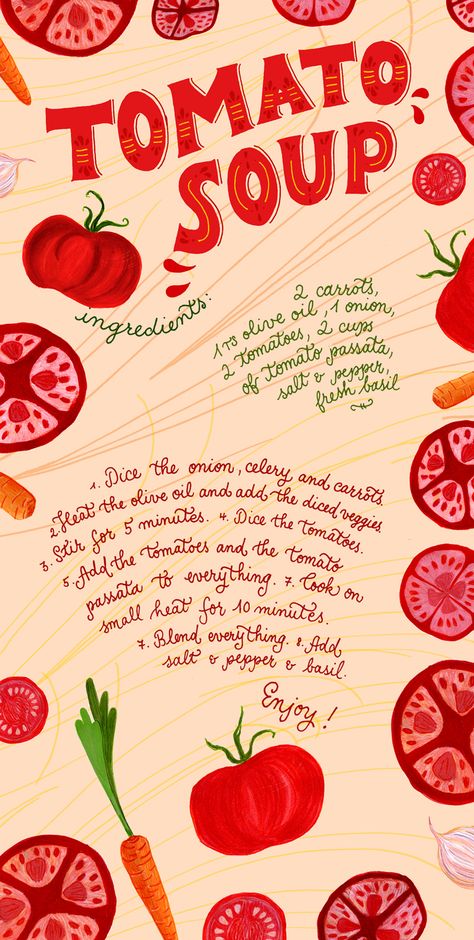 TOMATO
SOUP
ingredients:
2 carrots,
1 TS olive oil, 1 onion,
2 tomatoes, 2 cups
of tomato passata,
salt & pepper,
fresh basil
1. Dice the onion, celery and carrots.
2. Heat the olive oil and add the diced veggies
3. Stir for 5 minutes. 4. Dice the tomatoes.
5. Add the tomatoes and the tomato
passata to everything. 7. Cook on
small heat for 10 minutes.
7. Blend everything. 8. Add
salt & pepper & basil.
Enjoy!